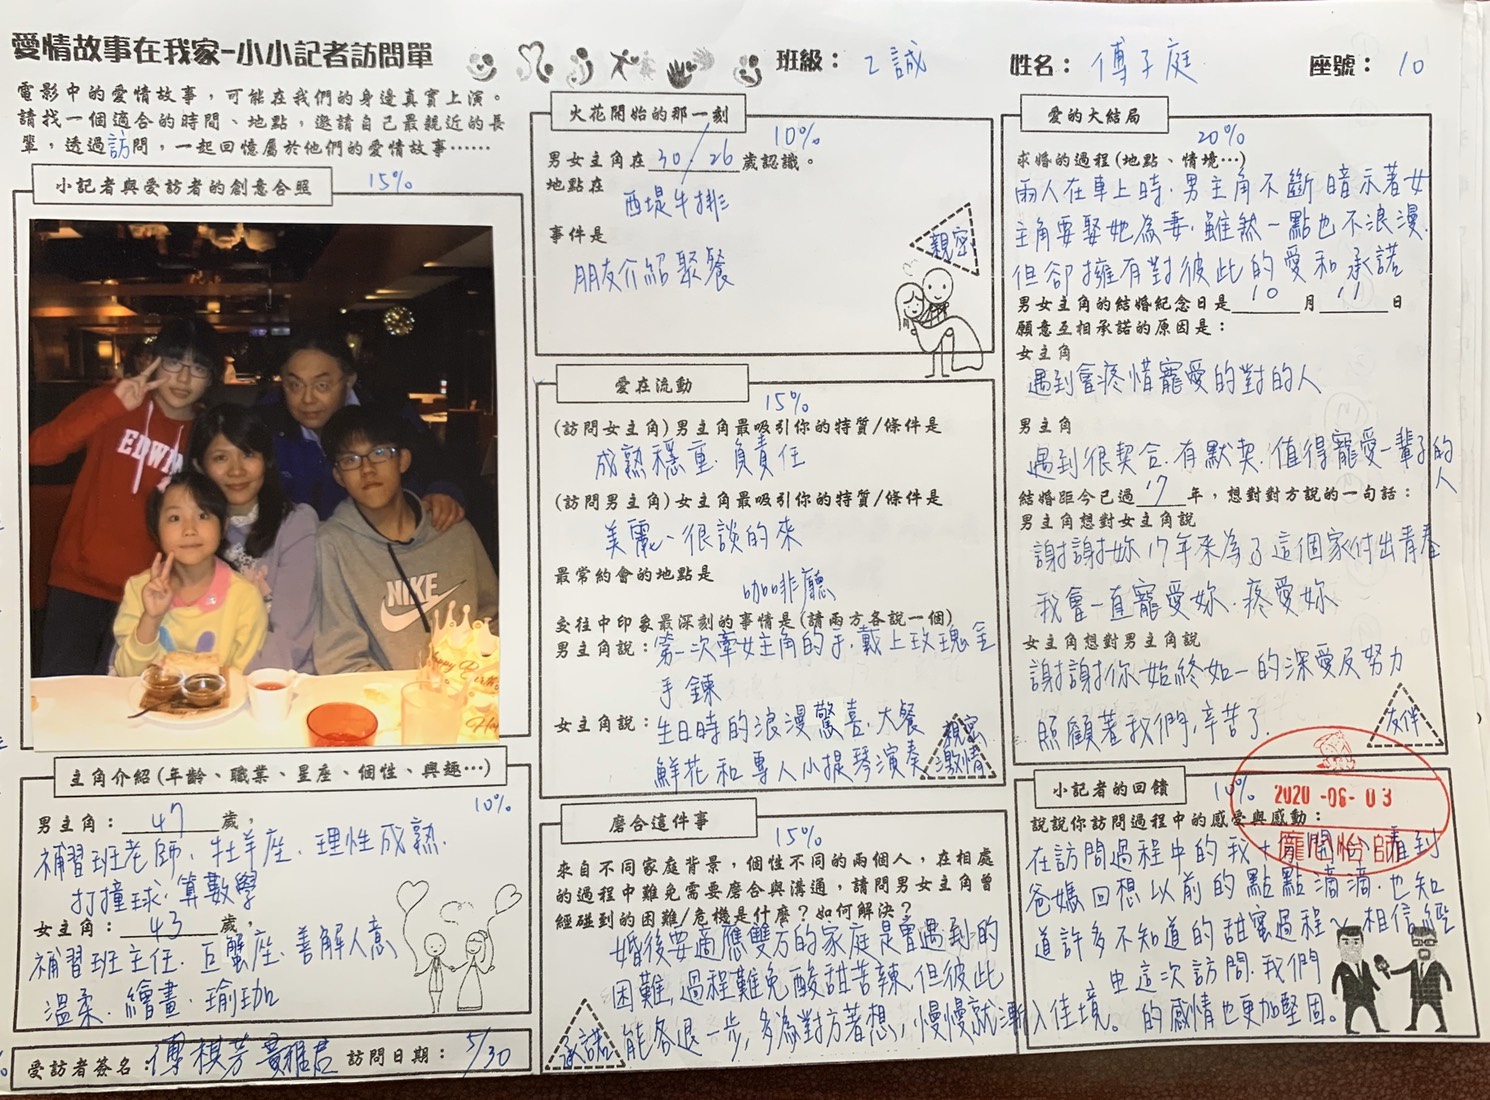 愛情故事在我家-小小記者訪問單
班級： 乙誠
姓名： 傅子庭
座號： 10
電影中的愛情故事，可能在我們的身邊真實上演。
請找一個適合的時間、地點，邀請自己最親近的長
輩，透過訪問，一起回憶屬於他們的愛情故事……
小記者與受訪者的創意合照
15%
EDWIN
NIKE
Happy Birthday
主角介紹(年齡、職業、星座、個性、興趣…)
10%
男主角： 47 歲，
補習班老師、牡羊座、理性成熟、
打撞球、算數學
女主角： 43 歲，
補習班主任、巨蟹座、善解人意
溫柔、繪畫、瑜珈
受訪者簽名：傅棋芳 黃雅君 訪問日期： 5/30
火花開始的那一刻
10%
男女主角在 30/26 歲認識。
地點在
西堤牛排
事件是
朋友介紹聚餐
親密
愛在流動
15%
(訪問女主角)男主角最吸引你的特質/條件是
成熟穩重、負責任
(訪問男主角)女主角最吸引你的特質/條件是
美麗、很談的來
最常約會的地點是
咖啡廳
交往中印象最深刻的事情是(請兩方各說一個)
男主角說：第一次牽女主角的手，戴上玫瑰金
手鍊
女主角說：生日時的浪漫驚喜，大餐
鮮花和專人小提琴演奏
親密
激情
磨合這件事
15%
來自不同家庭背景，個性不同的兩個人，在相處
的過程中難免需要磨合與溝通，請問男女主角曾
經碰到的困難/危機是什麼？如何解決？
婚後要適應雙方的家庭是會遇到的
困難，過程難免酸甜苦辣，但彼此
能各退一步，多為對方著想，慢慢就漸入佳境。
承諾
愛的大結局
20%
求婚的過程(地點、情境…)
兩人在車上時，男主角不斷暗示著女
主角要娶她為妻，雖然一點也不浪漫，
但卻擁有對彼此的愛和承諾
男女主角的結婚紀念日是 10 月 11 日
願意互相承諾的原因是：
女主角
遇到會疼惜寵愛的對的人
男主角
遇到很契合、有默契、值得寵愛一輩子的
人
結婚距今已過 17 年，想對對方說的一句話：
男主角想對女主角說
謝謝妳17年來為了這個家付出青春
我會一直寵愛妳、疼愛妳
女主角想對男主角說
謝謝你始終如一的深愛及努力
照顧著我們，辛苦了
友伴
小記者的回饋
10%
2020-06-03
說說你訪問過程中的感受與感動：
在訪問過程中的我十分開心，看到
爸媽回想以前的點點滴滴，也知
道許多不知道的甜蜜過程～相信經
由這次訪問，我們
的感情也更加堅固。